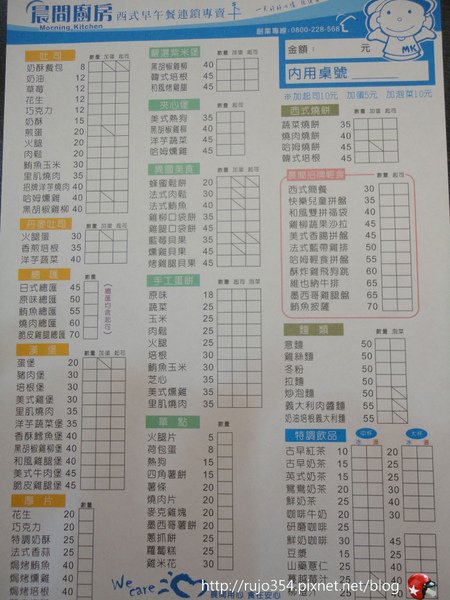 晨間廚房 西式早午餐連鎖專賣
Morning Kitchen
創業專線:0800-228-568
金額: 元
內用桌號
MK
※加起司10元 加蛋5元 加泡菜10元
吐司 數量 加蛋 起司
奶酥餐包 8
奶油 12
草莓 12
花生 12
巧克力 12
奶酥 15
煎蛋 20
火腿 20
肉鬆 20
鮪魚玉米 30
里肌燒肉 35
招牌洋芋燒肉 40
哈姆燻雞 40
黑胡椒雞柳 40
丹麥吐司
火腿蛋 30
香煎培根 35
洋芋蔬菜 40
總匯 數量
日式總匯 45
原味總匯 50
鮪魚總匯 55
燒肉總匯 60
脆皮雞腿總匯 70
(總匯均含起司)
漢堡 數量 加蛋 起司
蛋堡 20
豬肉堡 30
培根堡 30
美式雞堡 30
里肌燒肉 35
洋芋蔬菜堡 35
香酥鱈魚堡 40
黑胡椒雞柳堡 40
和風雞腿堡 40
美式牛肉堡 45
脆皮雞腿堡 50
厚片 數量
花生 20
巧克力 20
特調奶酥 25
法式香蒜 25
焗烤鮪魚 40
焗烤燻雞
嚴選紫米堡 數量 加蛋 起司
黑胡椒雞柳 40
韓式培根 40
和風烤雞腿 45
夾心堡 數量 加蛋 起司
美式熱狗 35
黑胡椒雞柳 40
洋芋蔬菜 40
哈姆燻雞 45
異國美食 數量 加蛋 起司
蜂蜜鬆餅 30
法式肉鬆 35
法式鮪魚 40
雞柳口袋餅 35
雞腿口袋餅 35
藍莓貝果 35
燻雞貝果 45
烤雞腿貝果 45
手工蛋餅 數量 起司 泡菜
原味 18
蔬菜 25
玉米 25
肉鬆 30
火腿 30
培根 30
鮪魚玉米 30
芝心 35
美式燻雞 35
里肌燒肉 35
單點 數量
火腿片 5
荷包蛋 10
熱狗 15
四角薯餅 15
薯條 20
燒肉片 20
麥克雞塊 20
墨西哥薯餅 20
蔥抓餅 20
蘿蔔糕 20
雞米花 30
西式燒餅 數量 加蛋 起司
蔬菜燒餅 35
燒肉燒餅 40
哈姆燒餅 45
韓式培根 45
晨間招牌輕食 數量 加蛋 起司
西式簡餐 30
快樂兒童拼盤 35
和風雙拼福袋 40
雞柳蔬果沙拉 40
美式香腸拼盤 45
法式藍帶雞排 50
哈姆輕食拼盤 50
酥炸雞飛狗跳 60
維也納牛排 60
墨西哥雞腿盤 60
鮪魚披薩 50
麵類 數量 泡菜
意麵 50
雞絲麵 50
冬粉 50
拉麵 50
炒泡麵 50
義大利肉醬麵 55
奶油培根義大利麵 55
特調飲品 中杯 大杯
冰 溫 冰 溫
古早紅茶 10 20
古早奶茶 15
英式奶茶 15
鴛鴦奶茶 30
鮮奶茶
研磨咖啡
鮮奶咖啡
豆漿
山藥薏仁
We care
晨間用心 食在安心
http://rujo354.pixnet.net/blog